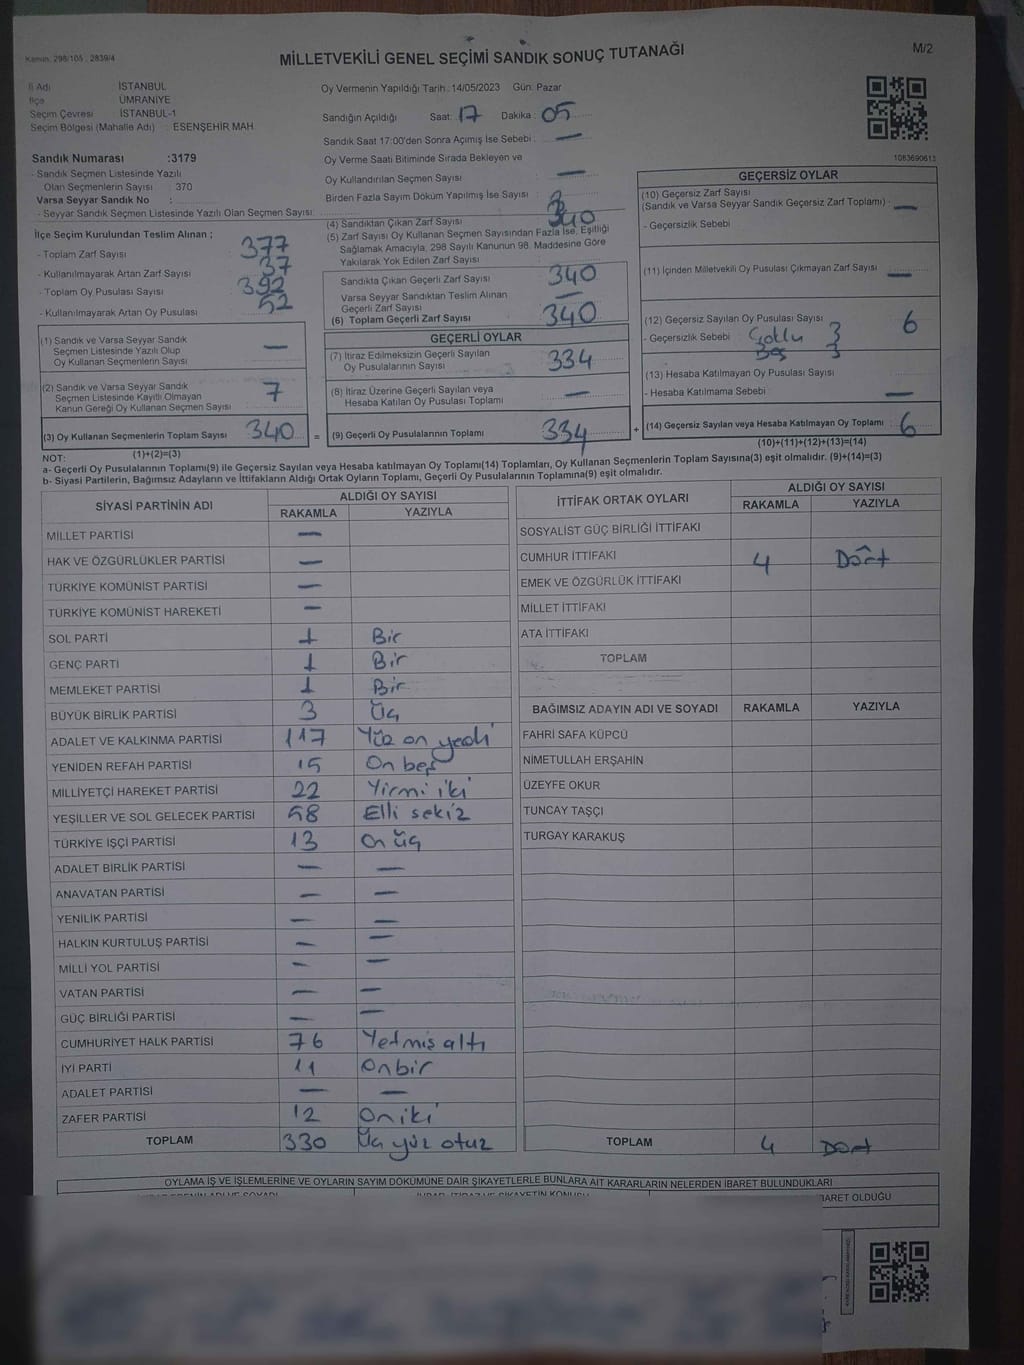 Kanun, 298/105 , 2839/4
MİLLETVEKİLİ GENEL SEÇİMİ SANDIK SONUÇ TUTANAĞI
M/2
İl Adı İSTANBUL
İlçe ÜMRANİYE
Seçim Çevresi İSTANBUL-1
Seçim Bölgesi (Mahalle Adı) : ESENŞEHİR MAH
Oy Vermenin Yapıldığı Tarih : 14/05/2023 Gün: Pazar
Sandığın Açıldığı Saat: 17 Dakika: 05
Sandık Saat 17:00'den Sonra Açımış İse Sebebi : —
Oy Verme Saati Bitiminde Sırada Bekleyen ve
Oy Kullandırılan Seçmen Sayısı : —
Birden Fazla Sayım Döküm Yapılmış İse Sayısı :
Sandık Numarası :3179
- Sandık Seçmen Listesinde Yazılı
Olan Seçmenlerin Sayısı : 370
Varsa Seyyar Sandık No :
- Seyyar Sandık Seçmen Listesinde Yazılı Olan Seçmen Sayısı:
İlçe Seçim Kurulundan Teslim Alınan ;
- Toplam Zarf Sayısı : 377
- Kullanılmayarak Artan Zarf Sayısı : 37
- Toplam Oy Pusulası Sayısı : 392
- Kullanılmayarak Artan Oy Pusulası : 52
(1) Sandık ve Varsa Seyyar Sandık
Seçmen Listesinde Yazılı Olup
Oy Kullanan Seçmenlerin Sayısı —
(2) Sandık ve Varsa Seyyar Sandık
Seçmen Listesinde Kayıtlı Olmayan
Kanun Gereği Oy Kullanan Seçmen Sayısı 7
(3) Oy Kullanan Seçmenlerin Toplam Sayısı 340
(1)+(2)=(3)
(4) Sandıktan Çıkan Zarf Sayısı 340
(5) Zarf Sayısı Oy Kullanan Seçmen Sayısından Fazla İse, Eşitliği
Sağlamak Amacıyla, 298 Sayılı Kanunun 98. Maddesine Göre
Yakılarak Yok Edilen Zarf Sayısı :
Sandıkta Çıkan Geçerli Zarf Sayısı 340
Varsa Seyyar Sandıktan Teslim Alınan
Geçerli Zarf Sayısı —
(6) Toplam Geçerli Zarf Sayısı 340
GEÇERLİ OYLAR
(7) İtiraz Edilmeksizin Geçerli Sayılan
Oy Pusulalarının Sayısı 334
(8) İtiraz Üzerine Geçerli Sayılan veya
Hesaba Katılan Oy Pusulası Toplamı —
= (9) Geçerli Oy Pusulalarının Toplamı 334
1083690613
GEÇERSİZ OYLAR
(10) Geçersiz Zarf Sayısı
(Sandık ve Varsa Seyyar Sandık Geçersiz Zarf Toplamı) —
- Geçersizlik Sebebi
(11) İçinden Milletvekili Oy Pusulası Çıkmayan Zarf Sayısı —
(12) Geçersiz Sayılan Oy Pusulası Sayısı 6
- Geçersizlik Sebebi Çoklu 3
Boş 3
(13) Hesaba Katılmayan Oy Pusulası Sayısı
- Hesaba Katılmama Sebebi —
+ (14) Geçersiz Sayılan veya Hesaba Katılmayan Oy Toplamı 6
(10)+(11)+(12)+(13)=(14)
NOT:
a- Geçerli Oy Pusulalarının Toplamı(9) ile Geçersiz Sayılan veya Hesaba katılmayan Oy Toplamı(14) Toplamları, Oy Kullanan Seçmenlerin Toplam Sayısına(3) eşit olmalıdır. (9)+(14)=(3)
b- Siyasi Partilerin, Bağımsız Adayların ve İttifakların Aldığı Ortak Oyların Toplamı, Geçerli Oy Pusulalarının Toplamına(9) eşit olmalıdır.
SİYASİ PARTİNİN ADI ALDIĞI OY SAYISI
RAKAMLA YAZIYLA
MİLLET PARTİSİ —
HAK VE ÖZGÜRLÜKLER PARTİSİ —
TÜRKİYE KOMÜNİST PARTİSİ —
TÜRKİYE KOMÜNİST HAREKETİ —
SOL PARTİ 1 Bir
GENÇ PARTİ 1 Bir
MEMLEKET PARTİSİ 1 Bir
BÜYÜK BİRLİK PARTİSİ 3 Üç
ADALET VE KALKINMA PARTİSİ 117 Yüz on yedi
YENİDEN REFAH PARTİSİ 15 On beş
MİLLİYETÇİ HAREKET PARTİSİ 22 Yirmi iki
YEŞİLLER VE SOL GELECEK PARTİSİ 58 Elli sekiz
TÜRKİYE İŞÇİ PARTİSİ 13 On üç
ADALET BİRLİK PARTİSİ — —
ANAVATAN PARTİSİ — —
YENİLİK PARTİSİ — —
HALKIN KURTULUŞ PARTİSİ — —
MİLLİ YOL PARTİSİ — —
VATAN PARTİSİ — —
GÜÇ BİRLİĞİ PARTİSİ — —
CUMHURİYET HALK PARTİSİ 76 Yetmiş altı
İYİ PARTİ 11 Onbir
ADALET PARTİSİ — —
ZAFER PARTİSİ 12 Oniki
TOPLAM 330 Üç yüz otuz
İTTİFAK ORTAK OYLARI ALDIĞI OY SAYISI
RAKAMLA YAZIYLA
SOSYALİST GÜÇ BİRLİĞİ İTTİFAKI
CUMHUR İTTİFAKI 4 Dört
EMEK VE ÖZGÜRLÜK İTTİFAKI
MİLLET İTTİFAKI
ATA İTTİFAKI
TOPLAM
BAĞIMSIZ ADAYIN ADI VE SOYADI RAKAMLA YAZIYLA
FAHRİ SAFA KÜPCÜ
NİMETULLAH ERŞAHİN
ÜZEYFE OKUR
TUNCAY TAŞÇI
TURGAY KARAKUŞ
TOPLAM 4 Dört
OYLAMA İŞ VE İŞLEMLERİNE VE OYLARIN SAYIM DÖKÜMÜNE DAİR ŞİKAYETLERLE BUNLARA AİT KARARLARIN NELERDEN İBARET BULUNDUKLARI